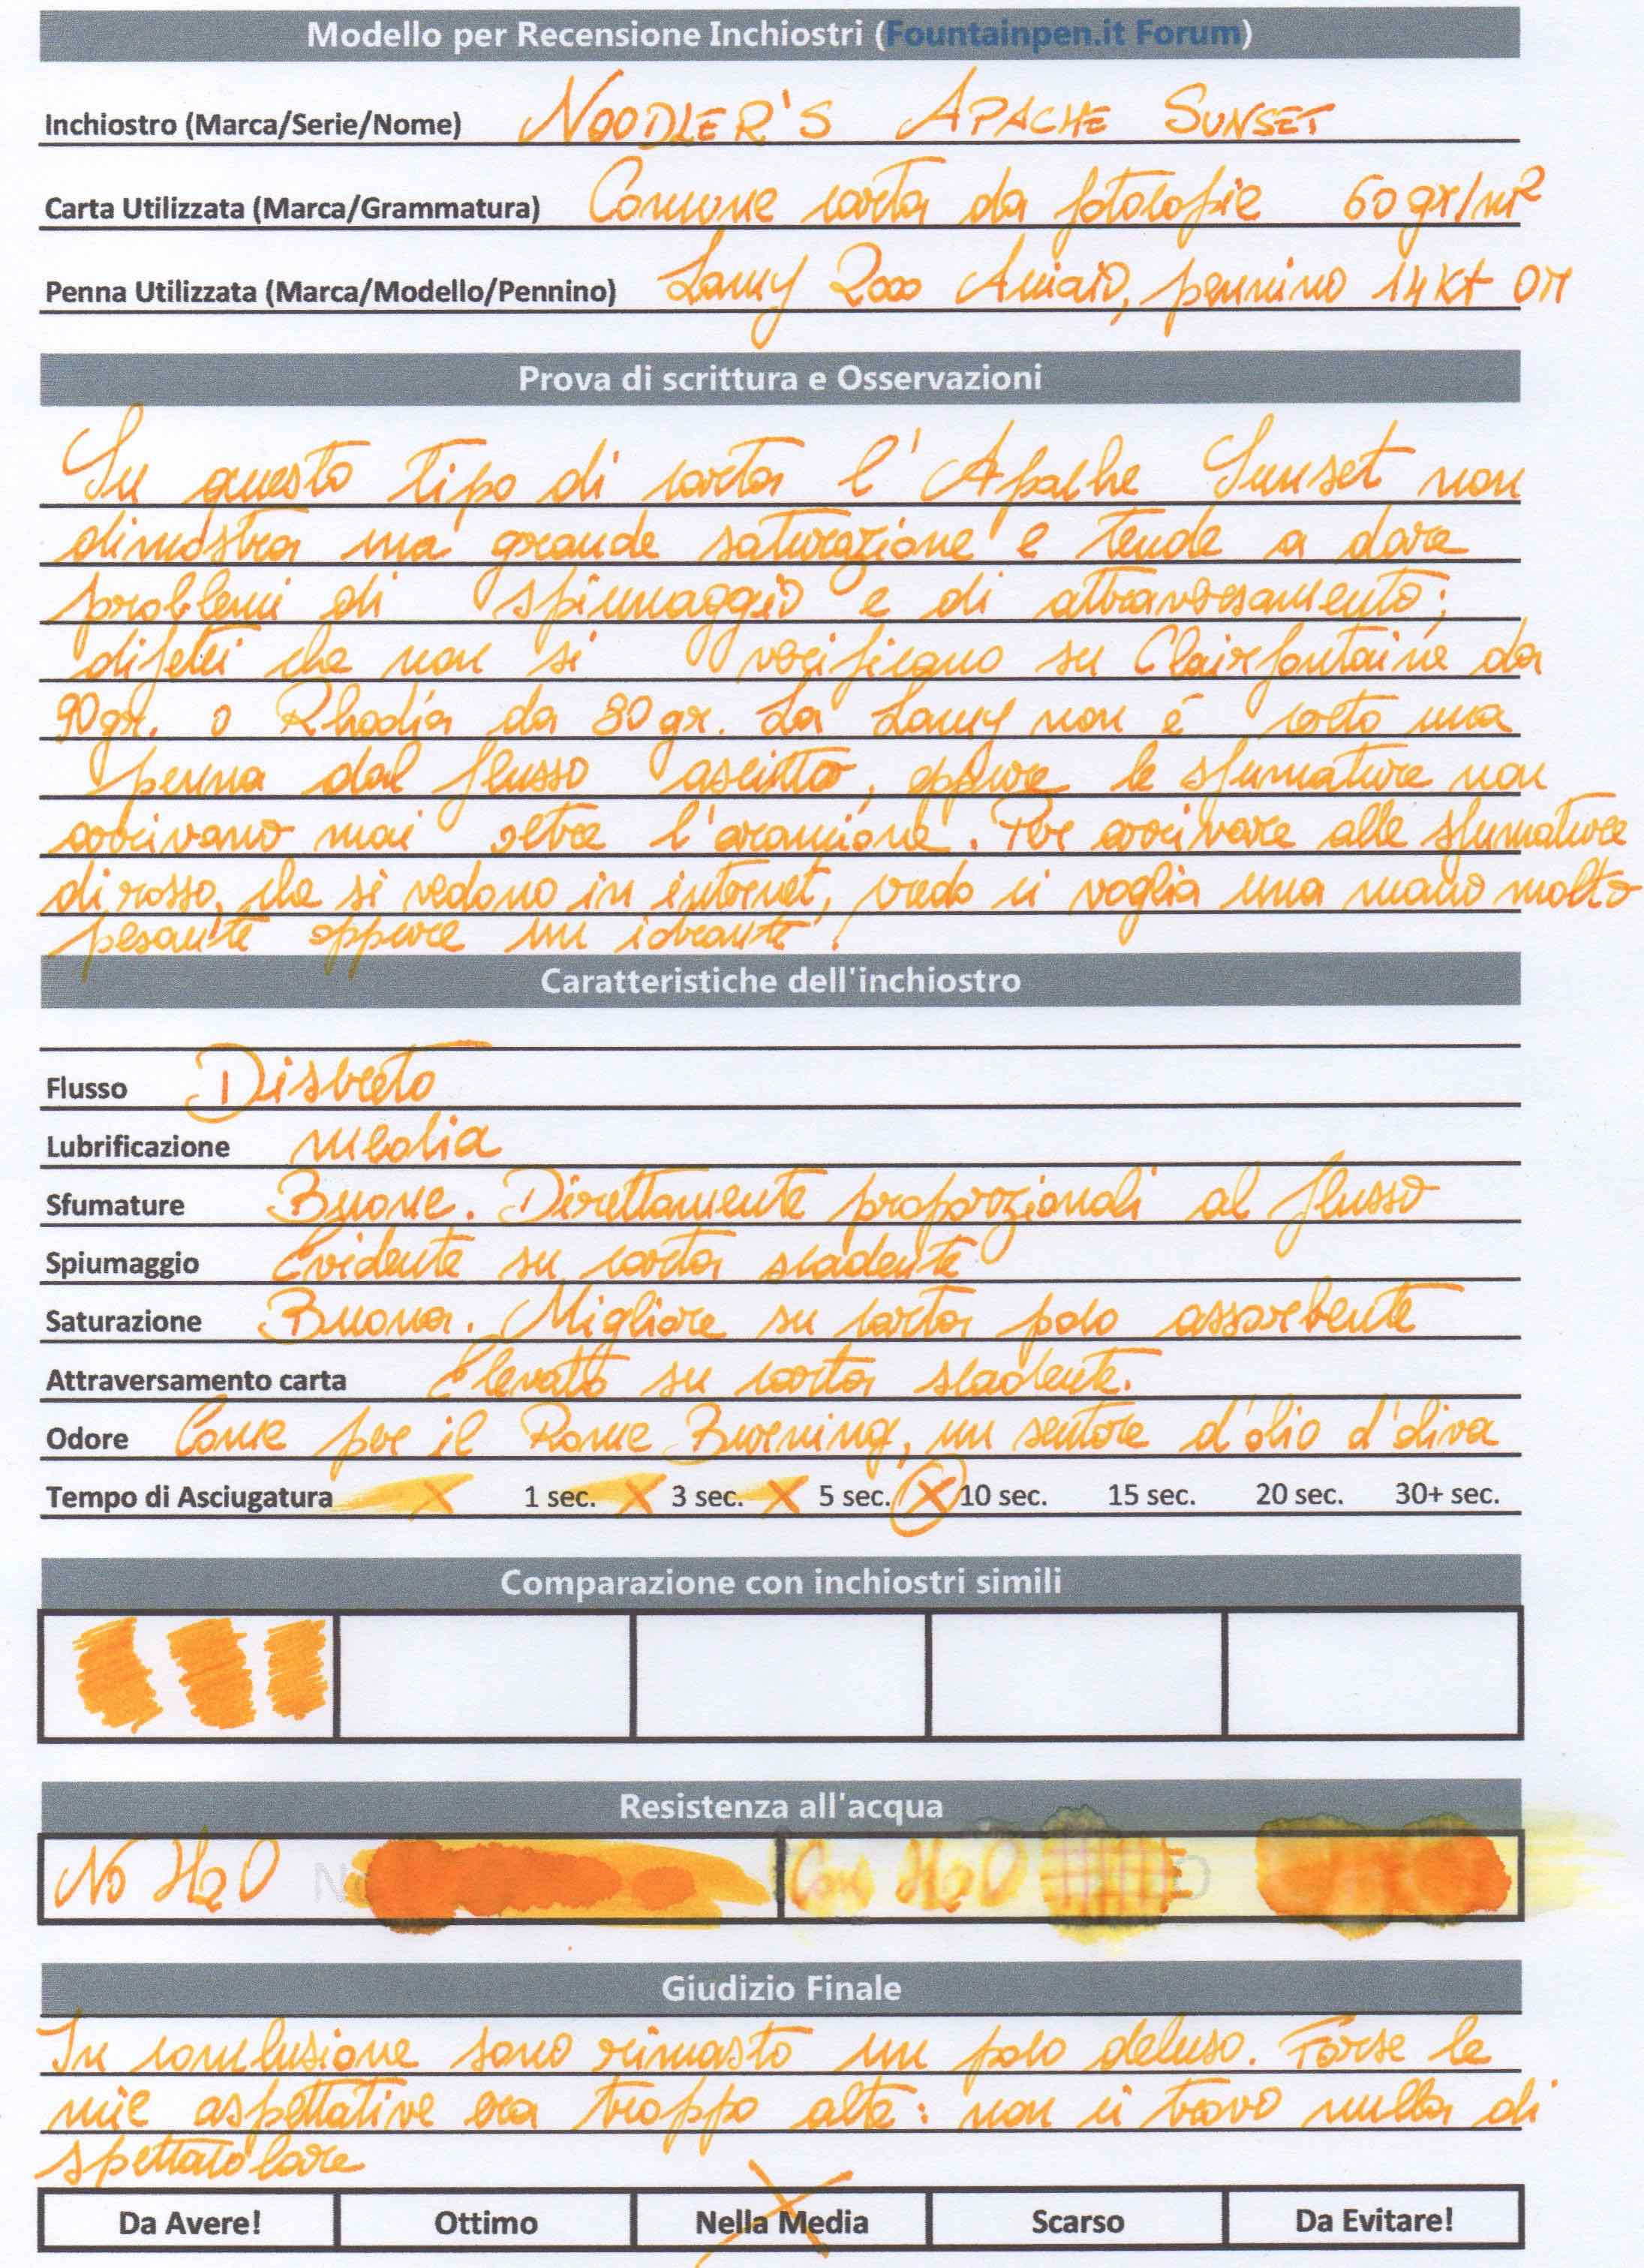 Modello per Recensione Inchiostri (Fountainpen.it Forum)
Inchiostro (Marca/Serie/Nome) NOODLER'S APACHE SUNSET
Carta Utilizzata (Marca/Grammatura) Comune carta da fotocopie 60 gr/m²
Penna Utilizzata (Marca/Modello/Pennino) Lamy 2000 Acciaio, pennino 14Kt
Prova di scrittura e Osservazioni
Su questo tipo di carta l'Apache Sunset non
dimostra una grande saturazione e tende a dare
problemi di spiumaggio e di attraversamento;
difetti che non si verificano su Clairefontaine da
90gr. o Rhodia da 80 gr. La Lamy non è certo una
penna dal flusso asciutto, eppure le sfumature non
arrivano mai oltre l'arancione. Per arrivare alle sfumature
di rosso, che si vedono in internet, credo ci voglia una mano molto
pesante oppure un idrante!
Caratteristiche dell'inchiostro
Flusso Discreto
Lubrificazione media
Sfumature Buone. Direttamente proporzionali al flusso
Spiumaggio Evidente su carta scadente
Saturazione Buona. Migliore su carta poco assorbente
Attraversamento carta Elevato su carta scadente.
Odore Come per il Rome Burning, un sentore d'olio d'oliva
Tempo di Asciugatura X 1 sec. X 3 sec. X 5 sec. X 10 sec. 15 sec. 20 sec. 30+ sec.
Comparazione con inchiostri simili
Resistenza all'acqua
No H2O Con H2O
Giudizio Finale
In conclusione sono rimasto un poco deluso. Forse le
mie aspettative era troppo alte: non ci trovo nulla di
spettacolare
Da Avere! Ottimo Nella Media Scarso Da Evitare!